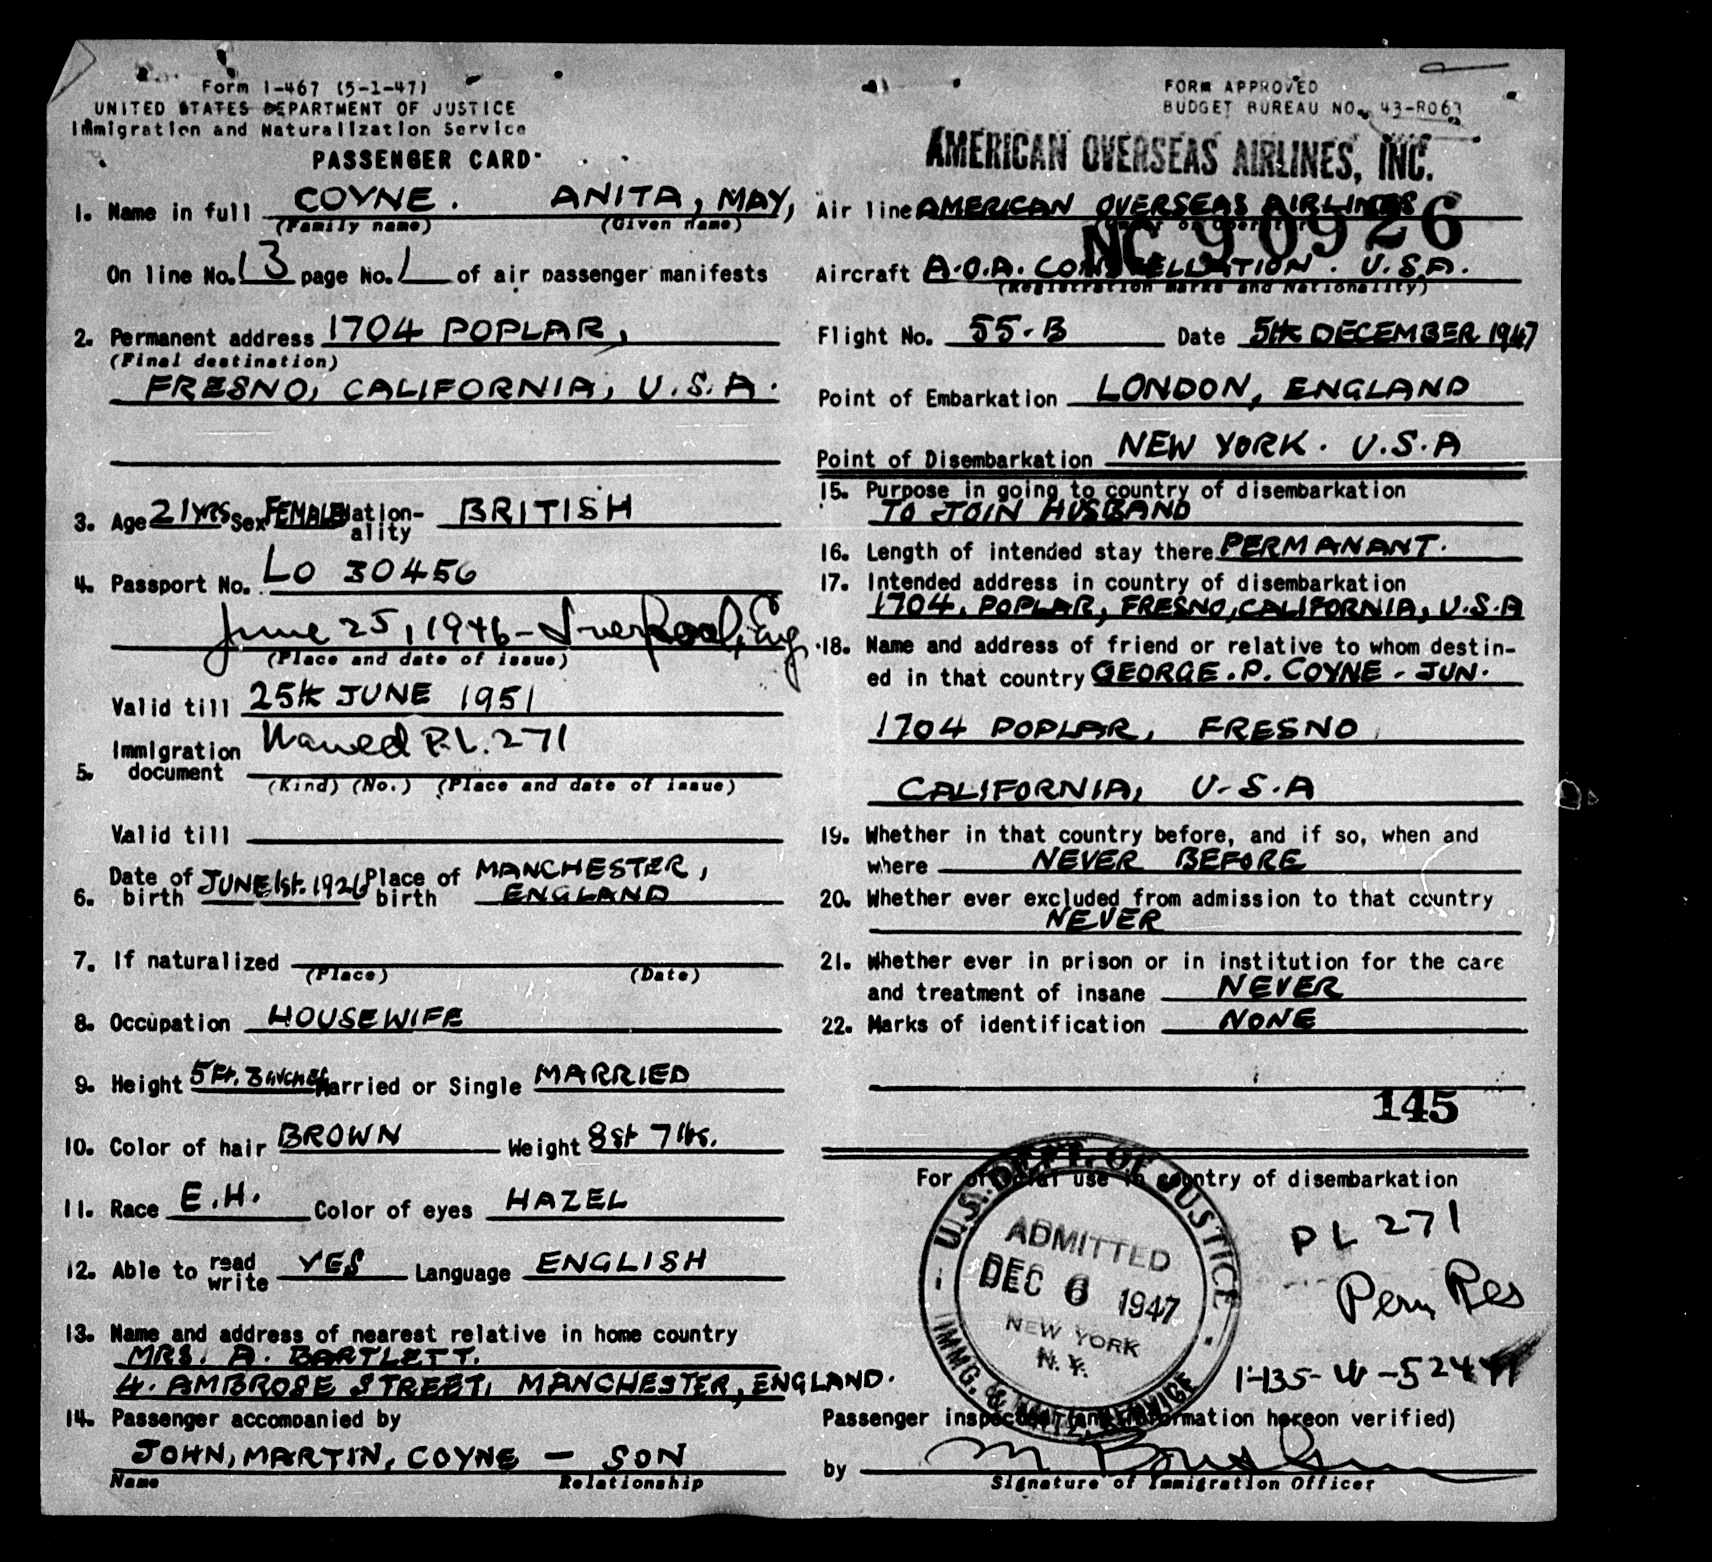 Form I-467 (5-1-47)
UNITED STATES DEPARTMENT OF JUSTICE
Immigration and Naturalization Service
PASSENGER CARD
1. Name in full COYNE. ANITA, MAY,
(Family name) (Given name)
On line No. 13 page No. 1 of air passenger manifests
2. Permanent address 1704 POPLAR,
(Final destination)
FRESNO, CALIFORNIA, U.S.A.
3. Age 21 YRS Sex FEMALE Nation-
ality BRITISH
4. Passport No. LO 30456
June 25, 1946 - Liverpool, Eng
(Place and date of issue)
Valid till 25th JUNE 1951
5. Immigration document Waived P.L. 271
(Kind) (No.) (Place and date of issue)
Valid till
6. Date of birth JUNE 1st. 1926 Place of birth MANCHESTER,
ENGLAND
7. If naturalized
(Place) (Date)
8. Occupation HOUSEWIFE
9. Height 5 Ft. 3 INCHES Married or Single MARRIED
10. Color of hair BROWN Weight 8 st 7 lbs.
11. Race E.H. Color of eyes HAZEL
12. Able to read write YES Language ENGLISH
13. Name and address of nearest relative in home country
MRS. A. BARTLETT.
4. AMBROSE STREET, MANCHESTER, ENGLAND.
14. Passenger accompanied by
JOHN, MARTIN, COYNE - SON
Name Relationship
FORM APPROVED
BUDGET BUREAU NO. 43-R063
AMERICAN OVERSEAS AIRLINES, INC.
Air line AMERICAN OVERSEAS AIRLINES
(Owner or Operator)
NC 90926
Aircraft A.O.A. CONSTELLATION. U.S.A.
(Registration marks and Nationality)
Flight No. 55-B Date 5th DECEMBER 1947
Point of Embarkation LONDON, ENGLAND
Point of Disembarkation NEW YORK. U.S.A
15. Purpose in going to country of disembarkation
TO JOIN HUSBAND
16. Length of intended stay there PERMANANT.
17. Intended address in country of disembarkation
1704, POPLAR, FRESNO, CALIFORNIA, U.S.A
18. Name and address of friend or relative to whom destin-
ed in that country GEORGE. P. COYNE - JUN.
1704 POPLAR, FRESNO,
CALIFORNIA, U.S.A
19. Whether in that country before, and if so, when and
where NEVER BEFORE
20. Whether ever excluded from admission to that country
NEVER
21. Whether ever in prison or in institution for the care
and treatment of insane NEVER
22. Marks of identification NONE
145
For official use in country of disembarkation
U.S. DEPT. OF JUSTICE
ADMITTED
DEC 6 1947
NEW YORK
N.Y.
IMMG. & NATZ. SERVICE
PL 271
Perm Res
Passenger inspected (and information hereon verified)
by
Signature of Immigration Officer